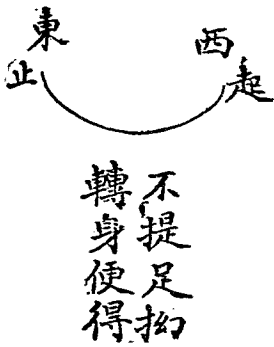 西起
東止
不提足拗
轉身便得